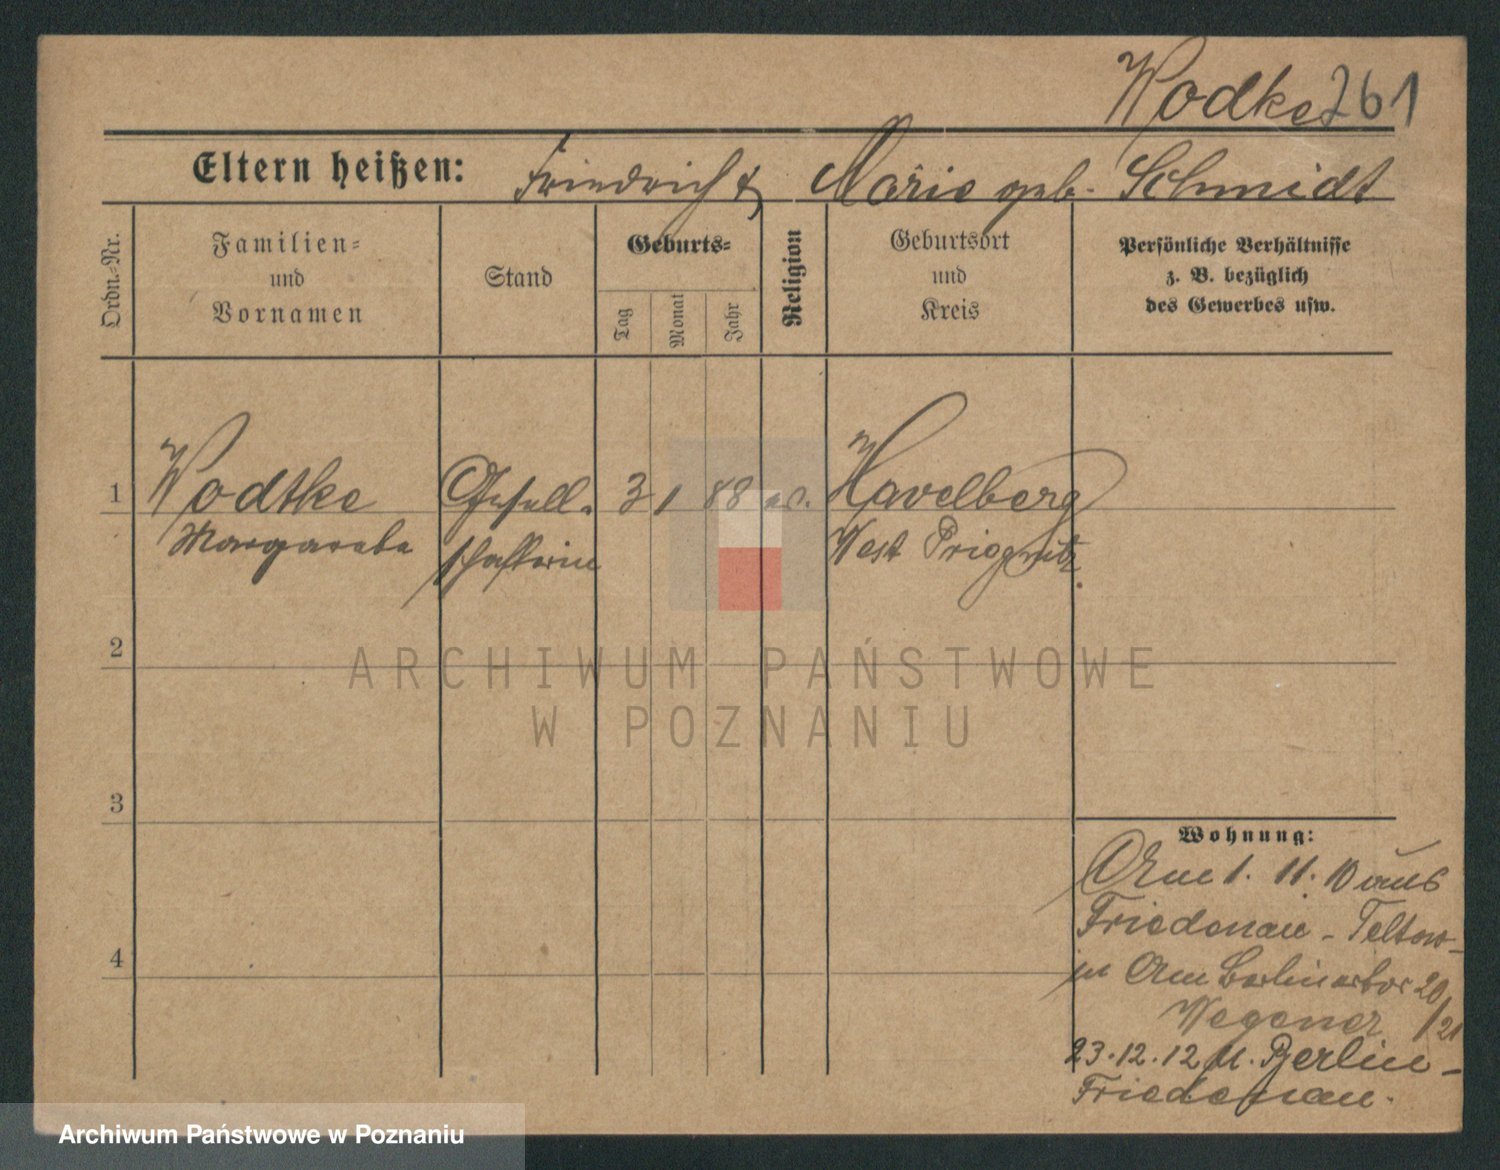 Wodtke 261
Eltern heißen: Friedrich & Marie geb. Schmidt
Ordn.-Nr.
Familien-
und
Vornamen
Stand
Geburts-
Tag
Monat
Jahr
Religion
Geburtsort
und
Kreis
Persönliche Verhältnisse
z. B. bezüglich
des Gewerbes usw.
1 Wodtke Gesell- 3 1 88 ev. Havelberg
Margarete schafterin West Priegnitz.
2
ARCHIWUM PAŃSTWOWE
W POZNANIU
3
Wohnung:
Am 1. 11. 10 aus
Friedenau - Teltow-
in Am Berlinertor 20/21
Wegener
23.12.12 n. Berlin-
Friedenau.
4
Archiwum Państwowe w Poznaniu